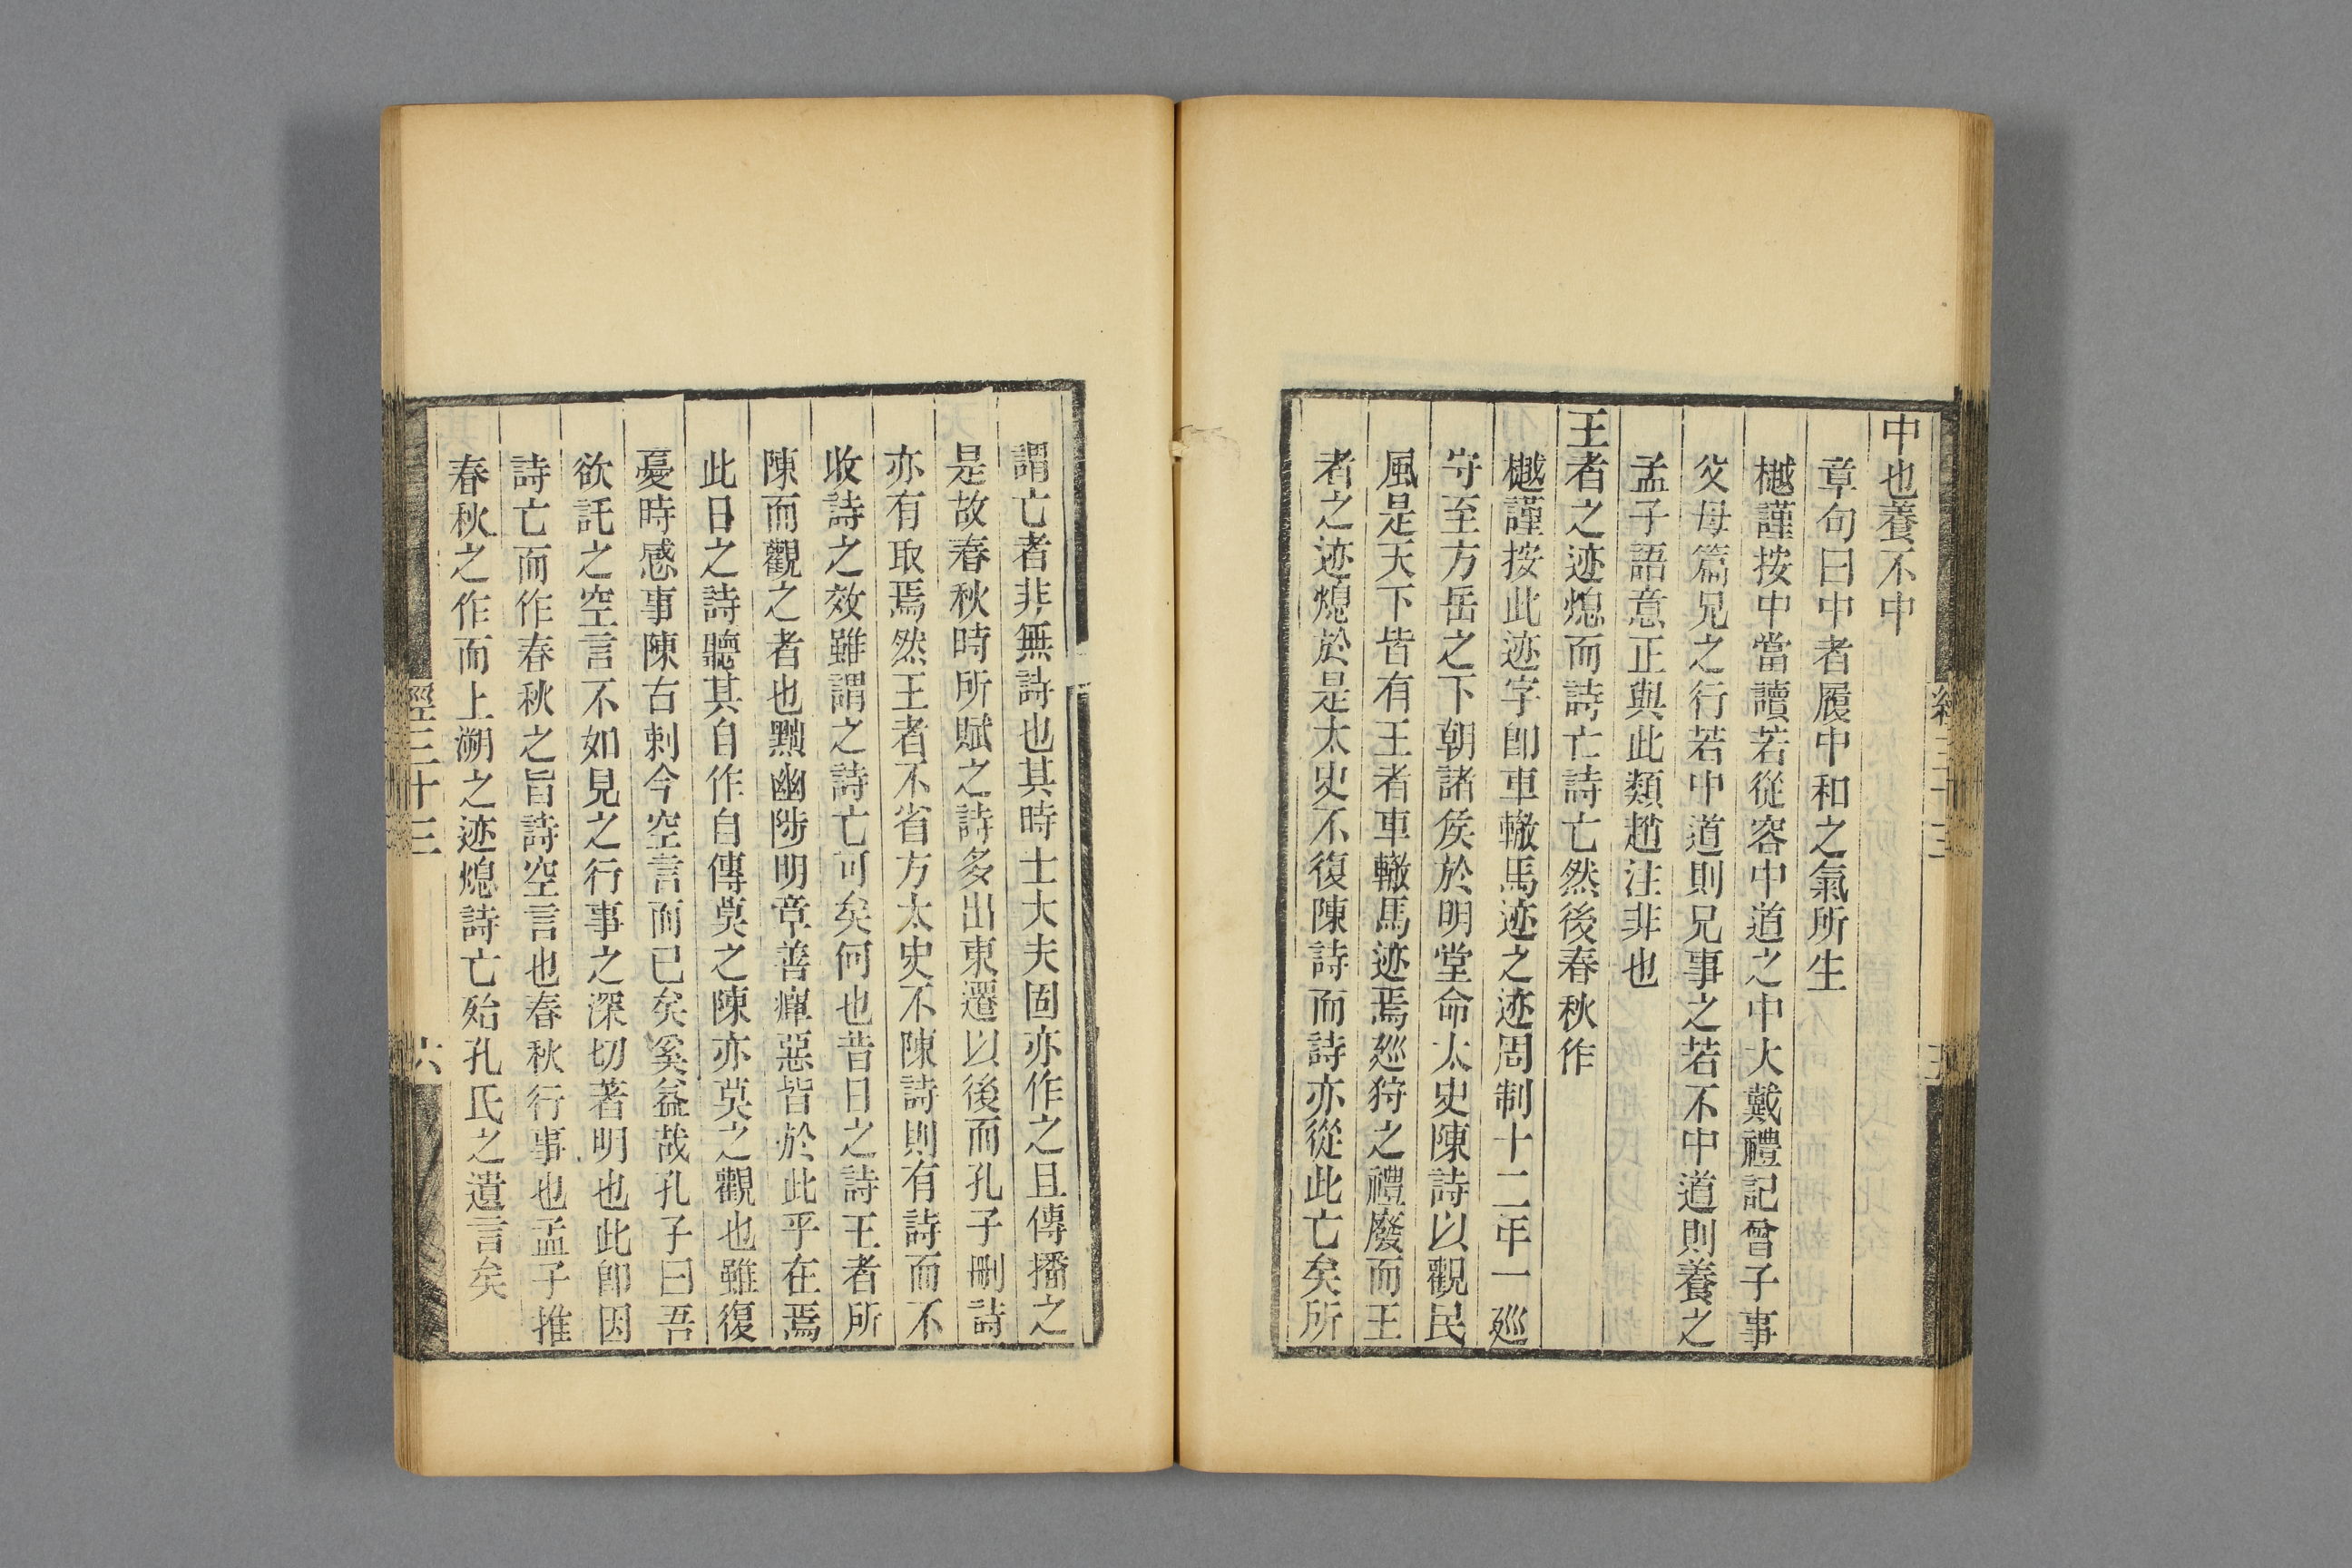 中也養不中
章句曰中者履中和之氣所生
樾謹按中當讀若從容中道之中大戴禮記曾子事
父母篇兄之行若中道則兄事之若不中道則養之
孟子語意正與此類趙注非也
王者之迹熄而詩亡詩亡然後春秋作
樾謹按此迹字卽車轍馬迹之迹周制十二年一廵
守至方岳之下朝諸矦於明堂命太史陳詩以觀民
風是天下皆有王者車轍馬迹焉廵狩之禮廢而王
者之迹熄於是太史不復陳詩而詩亦從此亡矣所
謂亡者非無詩也其時士大夫固亦作之且傳播之
是故春秋時所賦之詩多出東遷以後而孔子刪詩
亦有取焉然王者不省方太史不陳詩則有詩而不
收詩之效雖謂之詩亡可矣何也昔日之詩王者所
陳而觀之者也黜幽陟明章善癉惡皆於此乎在焉
此日之詩聽其自作自傳莫之陳亦莫之觀也雖復
憂時感事陳古刺今空言而已矣奚益哉孔子曰吾
欲託之空言不如見之行事之深切著明也此卽因
詩亡而作春秋之旨詩空言也春秋行事也孟子推
春秋之作而上溯之迹熄詩亡殆孔氏之遺言矣
經三十三
六